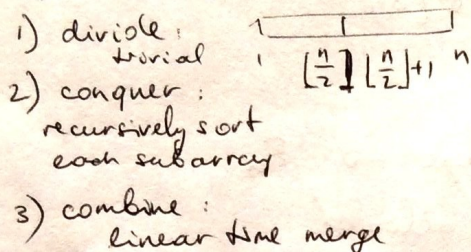 1) divide :
trivial
1 [n/2] [n/2]+1 n
2) conquer :
recursively sort
each subarray
3) combine :
linear time merge